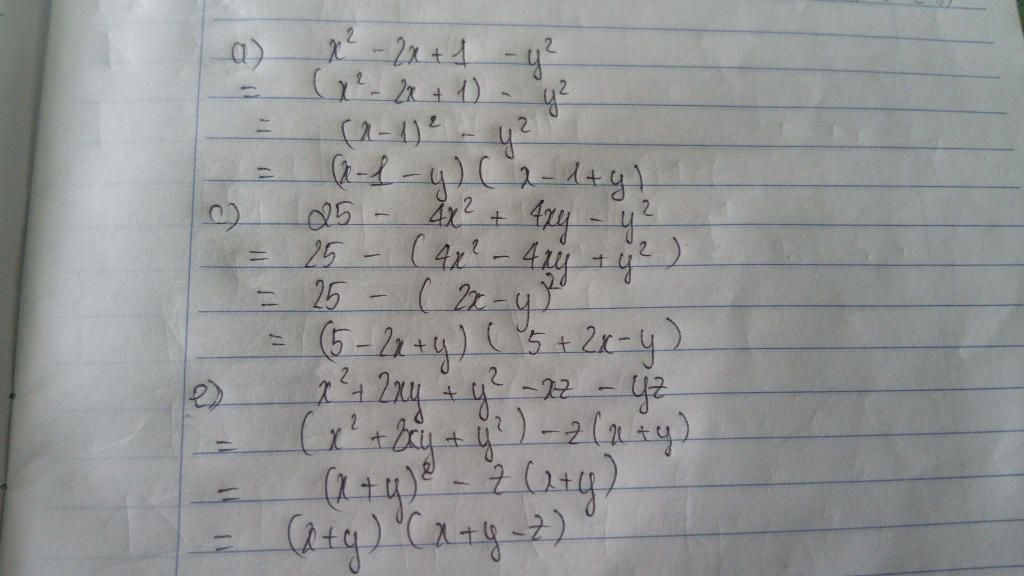 a) x² - 2x + 1 - y²
= (x² - 2x + 1) - y²
= (x - 1)² - y²
= (x - 1 - y) ( x - 1 + y)
c) 25 - 4x² + 4xy - y²
= 25 - ( 4x² - 4xy + y² )
= 25 - ( 2x - y)²
= (5 - 2x + y) ( 5 + 2x - y)
e) x² + 2xy + y² - xz - yz
= ( x² + 2xy + y² ) - z (x + y)
= (x + y)² - z (x + y)
= (x + y) (x + y - z)